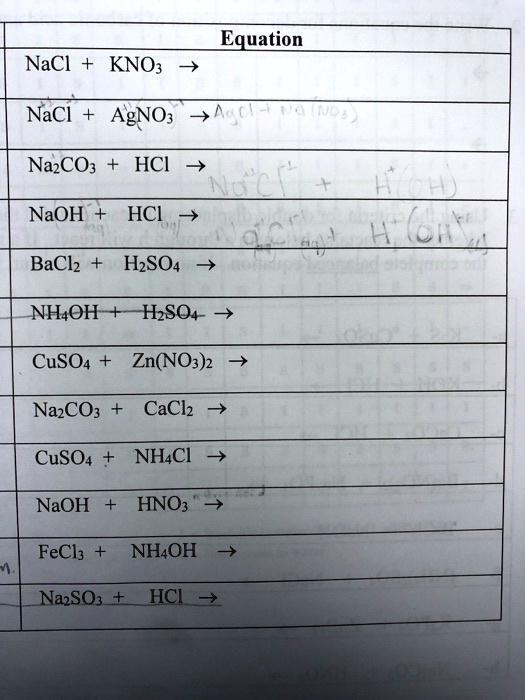 Equation
NaCl + KNO₃ →
NaCl + AgNO₃ → AgCl + Na(NO₃)
Na₂CO₃ + HCl →
Na⁺¹Cl⁻¹ + H⁺(OH)
NaOH + HCl → H (OH)
BaCl₂ + H₂SO₄ →
NH₄OH + H₂SO₄ →
CuSO₄ + Zn(NO₃)2 →
Na₂CO₃ + CaCl₂ →
CuSO₄ + NH₄Cl →
NaOH + HNO₃ →
FeCl₃ + NH₄OH →
Na₂SO₃ + HCl →